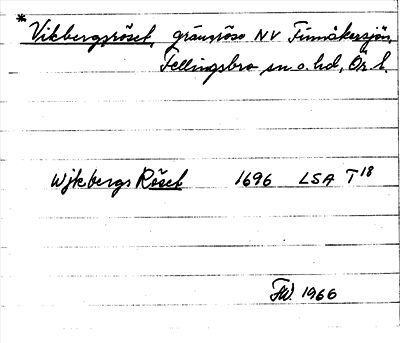 * Vikbergsröset, gränsröse NV Finnåkersjön,
Fellingsbro sn o. hd, Ör. l.
Wjkbergs Röset 1696 LSA T18
FW. 1966